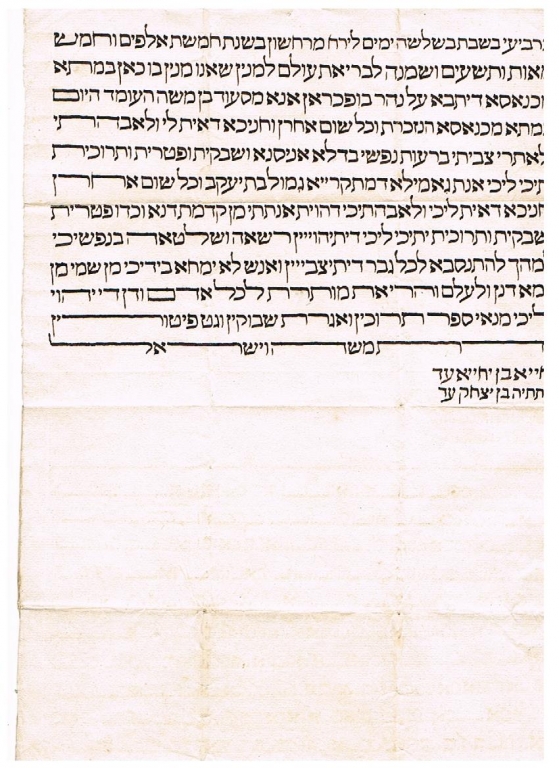 ברביעי בשבת בשלשה ימים לירח מרחשון בשנת חמשת אלפים וחמש
מאות ותשעים ושמנה לבריאת עולם למנין שאנו מנין בו כאן במתא
מכנאסא דיתבא על נהר בופכראן אנא מסעוד בן משה העומד היום
במתא מכנאסא הנזכרת וכל שום אחרן וחניכא דאית לי ולאבהתי
ולאתרי צביתי ברעות נפשי בדלא אניסנא ושבקית ופטרית ותרוכית
יתיכי ליכי אנת נאמילא דמתקרייא גמול בת יעקב וכל שום אחרן
וחניכא דאית ליכי ולאבהתיכי דהוית אנתתי מן קדמת דנא וכדו פטרית
ושבקית ותרוכית יתיכי ליכי דיתיהוייין רשאה ושלטאה בנפשיכי
למהך להתנסבא לכל גבר דיתיצבייין ואנש לא ימחא בידיכי מן שמי מן
יומא דנן ולעלם והרי את מותרת לכל אדם ודן די יהוי
ליכי מנאי ספר תרוכין ואגרת שבוקין וגט פיטורין
כדת משה וישראל
חייא בן יחייא עד
מתתיה בן יצחק עד